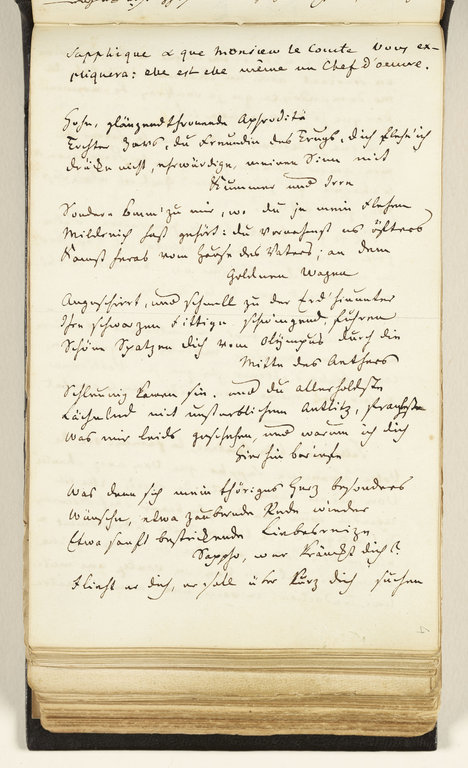 Sapphique & que Monsieur le Comte Vous ex-
pliquera: elle est elle même un Chef d'oeuvre.
Hohe, glänzendthronende Aphroditä
Tochter Zevs, du Freundin des Trugs, dich flehe ich
drücke nicht, ehrwürdige, meinen Sinn mit
Kummer und Irre
Sondern komm' zu mir, wo du je mein Flehen
Mildreich hast gehört: du vernahmst es öfters
Kamst herab vom Hause des Vaters; an dem
Goldnen Wagen
Angeschirrt, und schnell zu der Erd' hinunter
Ihre schwarzen Fittige schwingend, fuhren
Schöne Spatzen dich vom Olympus durch die
Mitte des Aethers
Schleunig kamen sie. und du allerholdste
Lächelnd mit unsterblichem Antlitz,
Was mir leids geschehen, und warum ich dich
Hierhin beriefe
Was denn sich mein thöriges Herz besonders
Wünsche, etwa zaubernde Rede wieder
Etwa sanft bestrickende Liebesreize
Sappho, wer kränckt dich?
Flieht er dich, er soll über kurz dich suchen